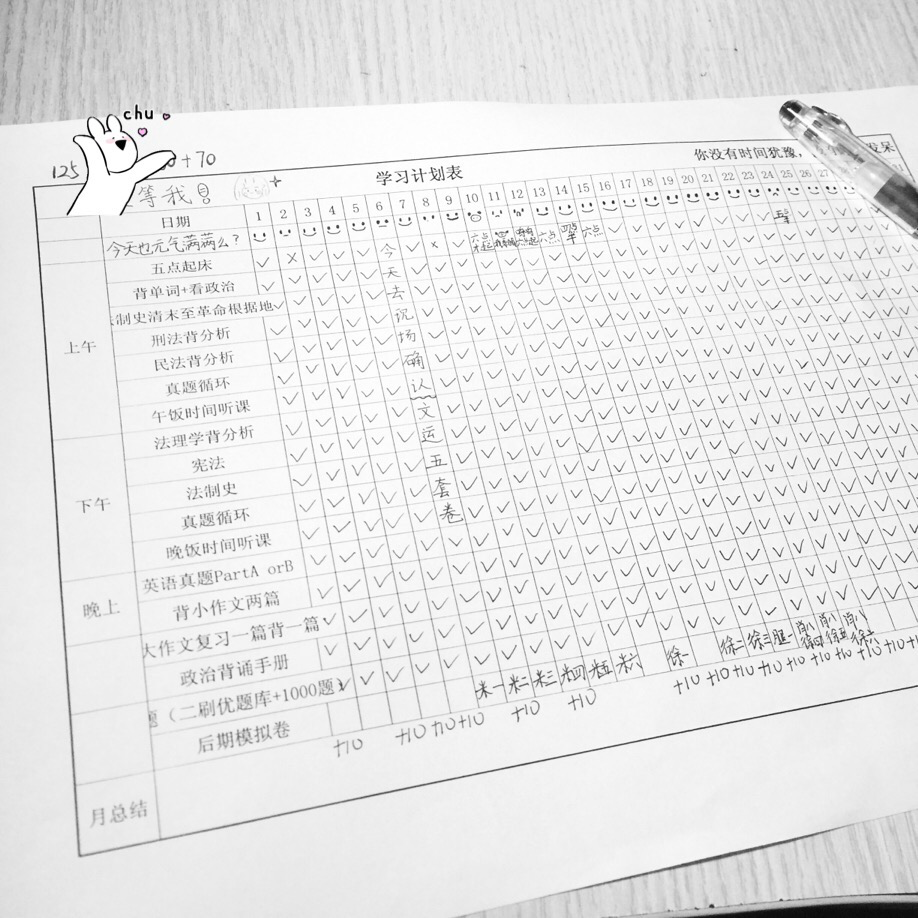 chu
125
+70
学习计划表
你没有时间犹豫，
发呆
等我
日期 1 2 3 4 5 6 7 8 9 10 11 12 13 14 15 16 17 18 19 20 21 22 23 24 25 26 27
今天也元气满满么？
五点起床 ✓ × ✓ ✓ ✓ 今 ✓ × ✓ 六点 六点 六点
背单词+看政治 天
制史清末至革命根据地 去
上午
刑法背分析 现
民法背分析 场
真题循环 确
午饭时间听课 认
法理学背分析 文
宪法 运
下午
法制史 五
真题循环 套
晚饭时间听课 卷
英语真题PartA orB
晚上
背小作文两篇
大作文复习一篇背一篇
政治背诵手册
题（二刷优题库+1000题）
后期模拟卷 米一 米二 米三 米四 米五 米六 徐一 徐二 徐三 腿一 肖八 徐四 肖八 徐五 肖八 徐六
+10 +10 +10 +10 +10 +10 +10 +10 +10 +10 +10 +10 +10 +10 +10 +10
月总结